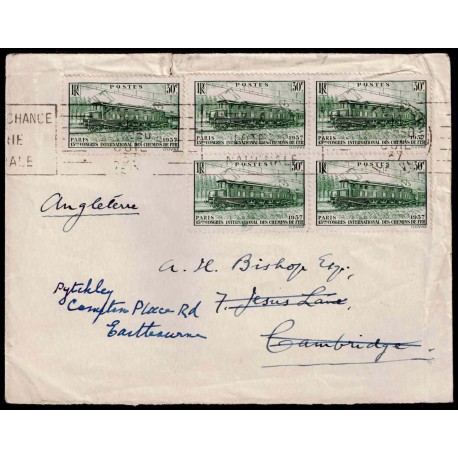 RF POSTES 50c
PARIS 1937
13ME CONGRES INTERNATIONAL DES CHEMINS DE FER
RF POSTES 50c
PARIS 1937
13ME CONGRES INTERNATIONAL DES CHEMINS DE FER
RF POSTES 50c
PARIS 1937
13ME CONGRES INTERNATIONAL DES CHEMINS DE FER
CHANCE
RIE
ALE
RF POSTES 50c
PARIS 1937
13ME CONGRES INTERNATIONAL DES CHEMINS DE FER
RF POSTES 50c
PARIS 1937
13ME CONGRES INTERNATIONAL DES CHEMINS DE FER
Angleterre
A. H. Bishop Esq.
7. Jesus Lane,
Cambridge.
Pytchley
Compton Place Rd
Eastbourne